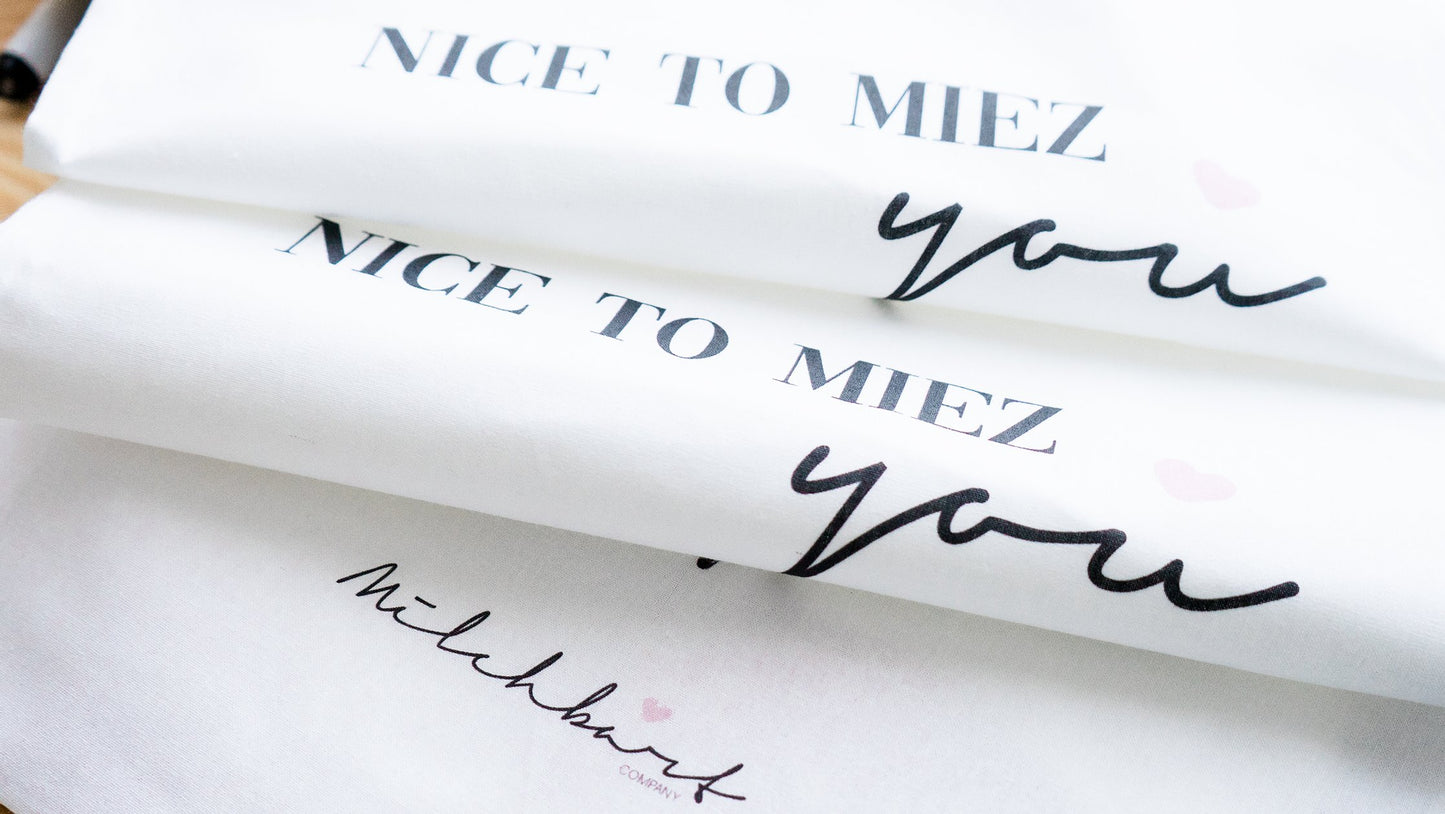 NICE TO MIEZ
you
NICE TO MIEZ
you
Milchbart
COMPANY